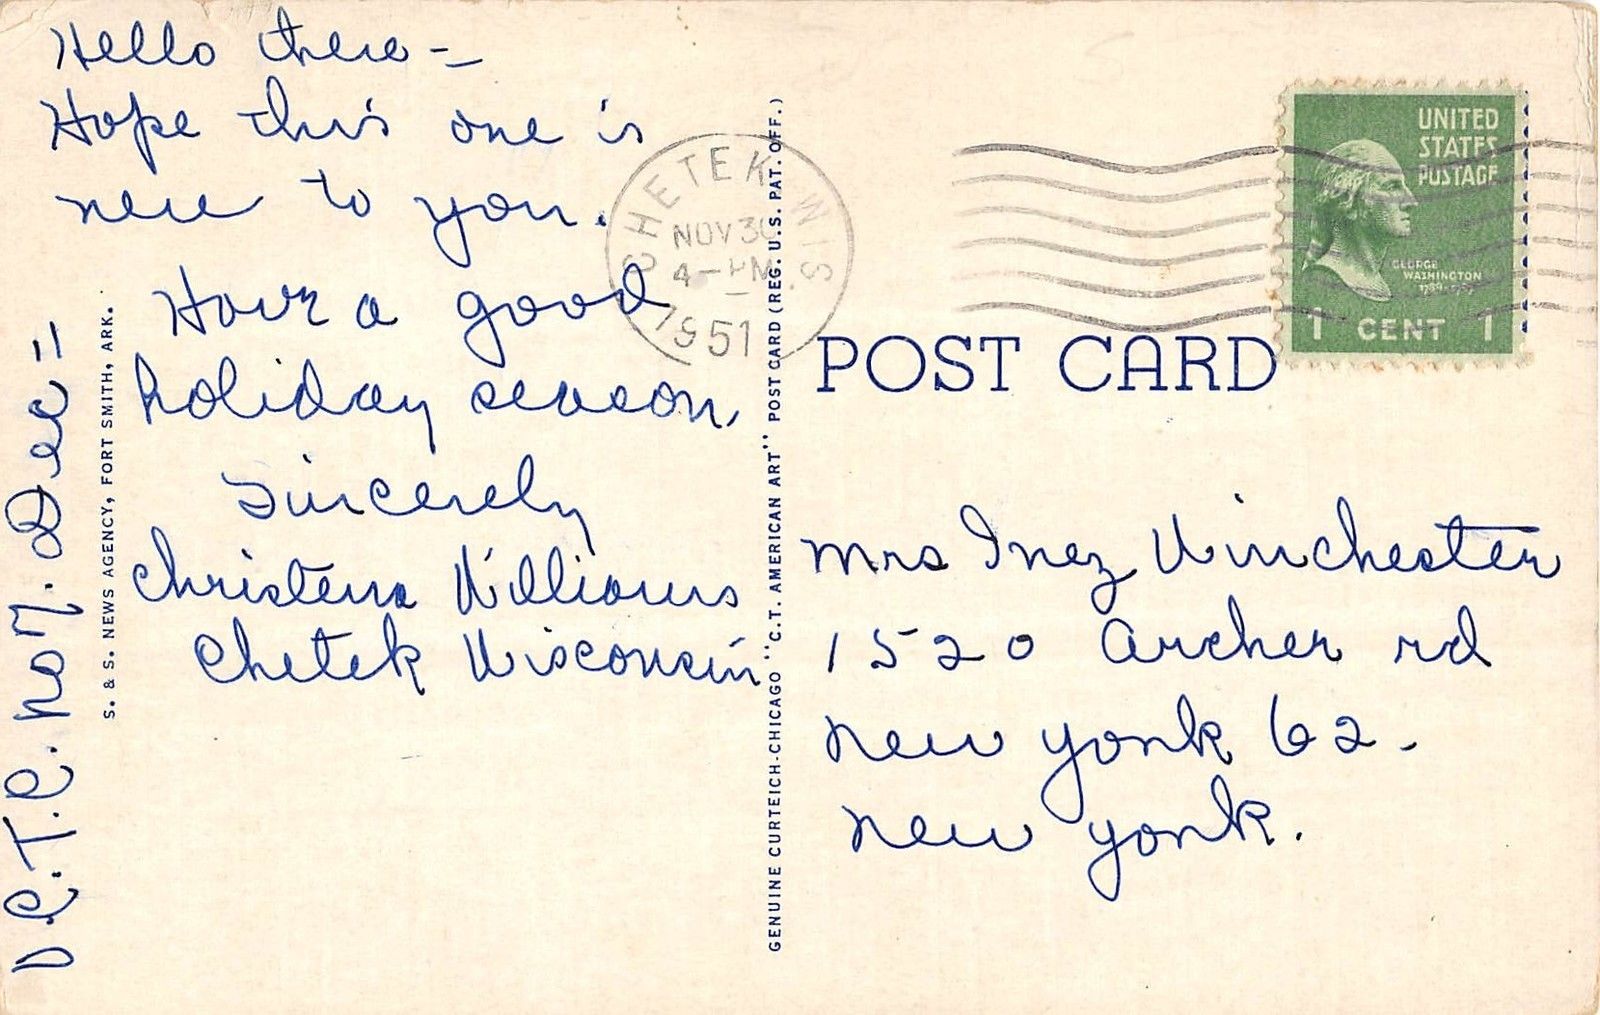 Hello there -
Hope this one is
new to you.
Have a good
holiday season,
Sincerely
Christena Williams
Chetek Wisconsin
D.C.T.C. no 7. Dec =
S. & S. NEWS AGENCY, FORT SMITH, ARK.
GENUINE CURTEICH-CHICAGO "C.T. AMERICAN ART" POST CARD (REG. U.S. PAT. OFF.)
CHETEK WIS.
NOV 30
4 - PM
1951
UNITED
STATES
POSTAGE
GEORGE
WASHINGTON
1 CENT 1
POST CARD
Mrs Inez Winchester
1520 Archer rd
New York 62 -
New York.